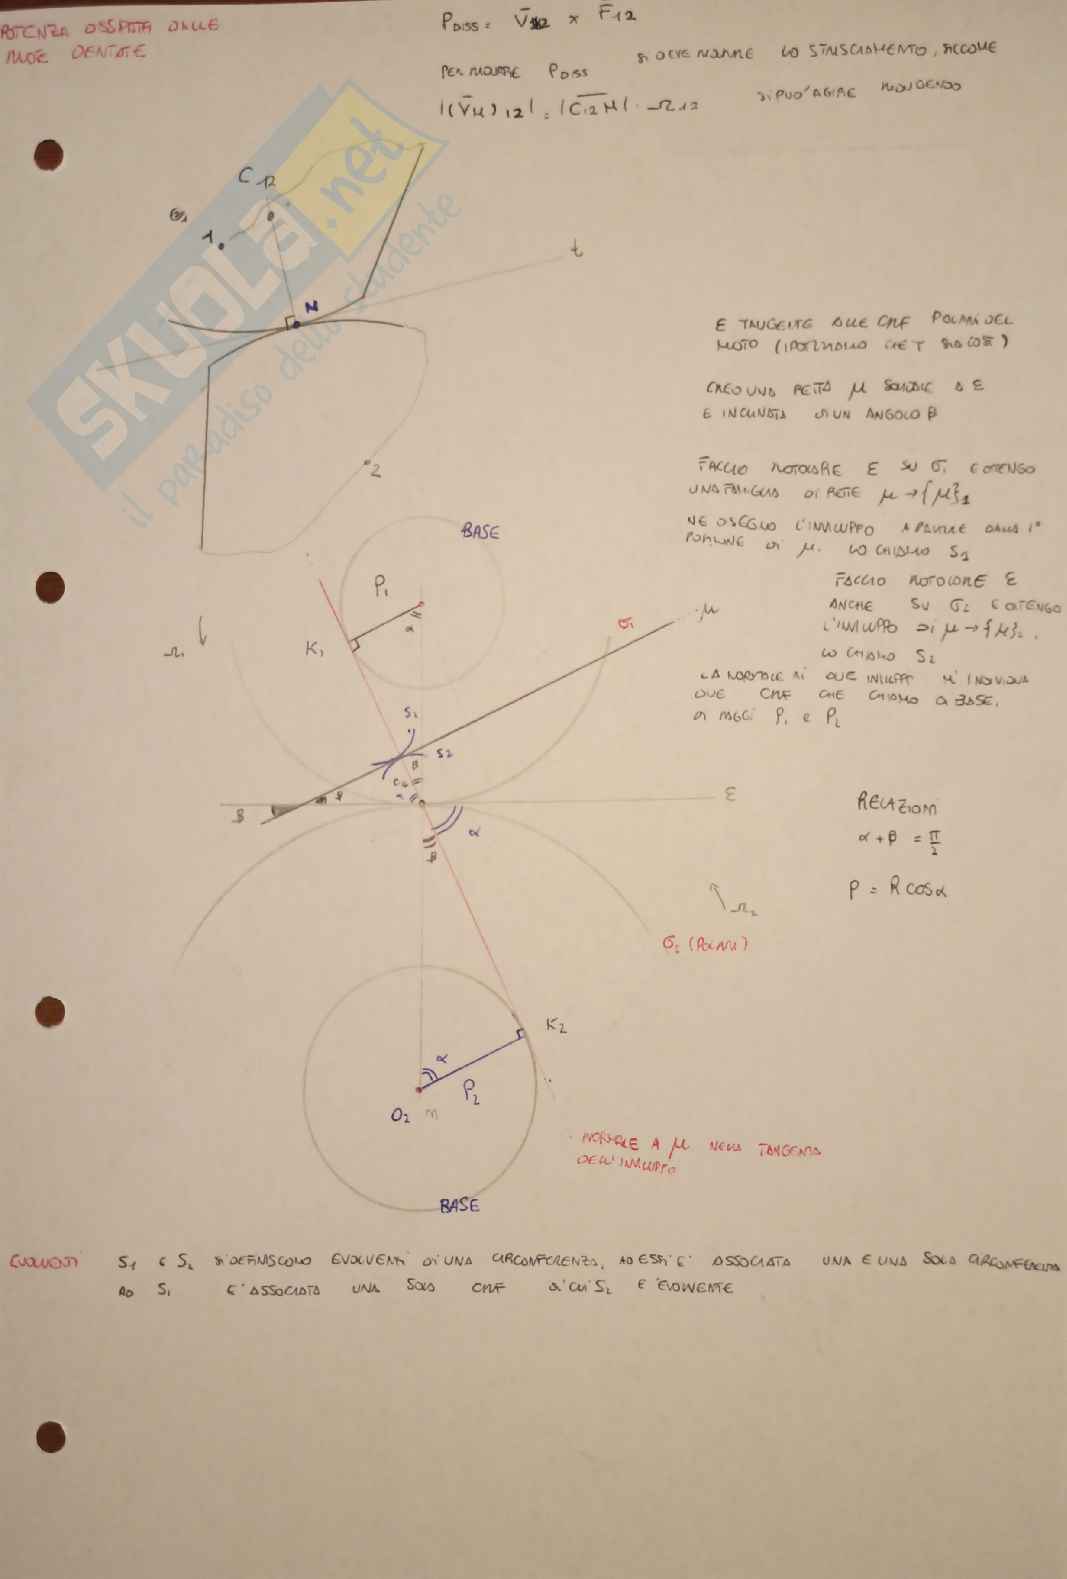 POTENZA DISSIPATA DALLE
RUOTE DENTATE
PDISS = V12 × F12
PER RIDURRE PDISS SI DEVE RIDURRE LO STRISCIAMENTO, SICCOME
|(VM)12| = |C12M| · Ω12 SI PUO' AGIRE RIDUCENDO
C12
1
M
t
2
SKUOLA.net
il paradiso dello studente
E TANGENTE ALLE CRF POLARI DEL
MOTO (IPOTIZZIAMO CHE T SIA COST)
CREO UNA RETTA μ SOLIDALE A E
E INCLINATA DI UN ANGOLO β
FACCIO ROTOLARE E SU σ1 E OTTENGO
UNA FAMIGLIA DI RETTE μ → {μ}1
NE DISEGNO L'INVILUPPO A PARTIRE DALLA 1°
POSIZIONE DI μ. LO CHIAMO S1
FACCIO ROTOLARE E
ANCHE SU σ2 E OTTENGO
L'INVILUPPO DI μ → {μ}2.
LO CHIAMO S2
LA NORMALE AI DUE INVILUPPI MI INDIVIDUA
DUE CRF CHE CHIAMO DI BASE,
DI RAGGI ρ1 E ρ2
BASE
ρ1
α
K1
Ω1
σ1
μ
S1
S2
β
ε
α
β
RELAZIONI
α + β = π/2
ρ = R cosα
Ω2
σ2 (POLARI)
K2
α
ρ2
O2
NORMALE A μ NELLA TANGENTE
DELL'INVILUPPO
BASE
S1 E S2 SI DEFINISCONO EVOLVENTI DI UNA CIRCONFERENZA, AD ESSI E' ASSOCIATA UNA E UNA SOLA CIRCONFERENZA
AD S1 E' ASSOCIATA UNA SOLA CRF DI CUI S2 E' EVOLVENTE